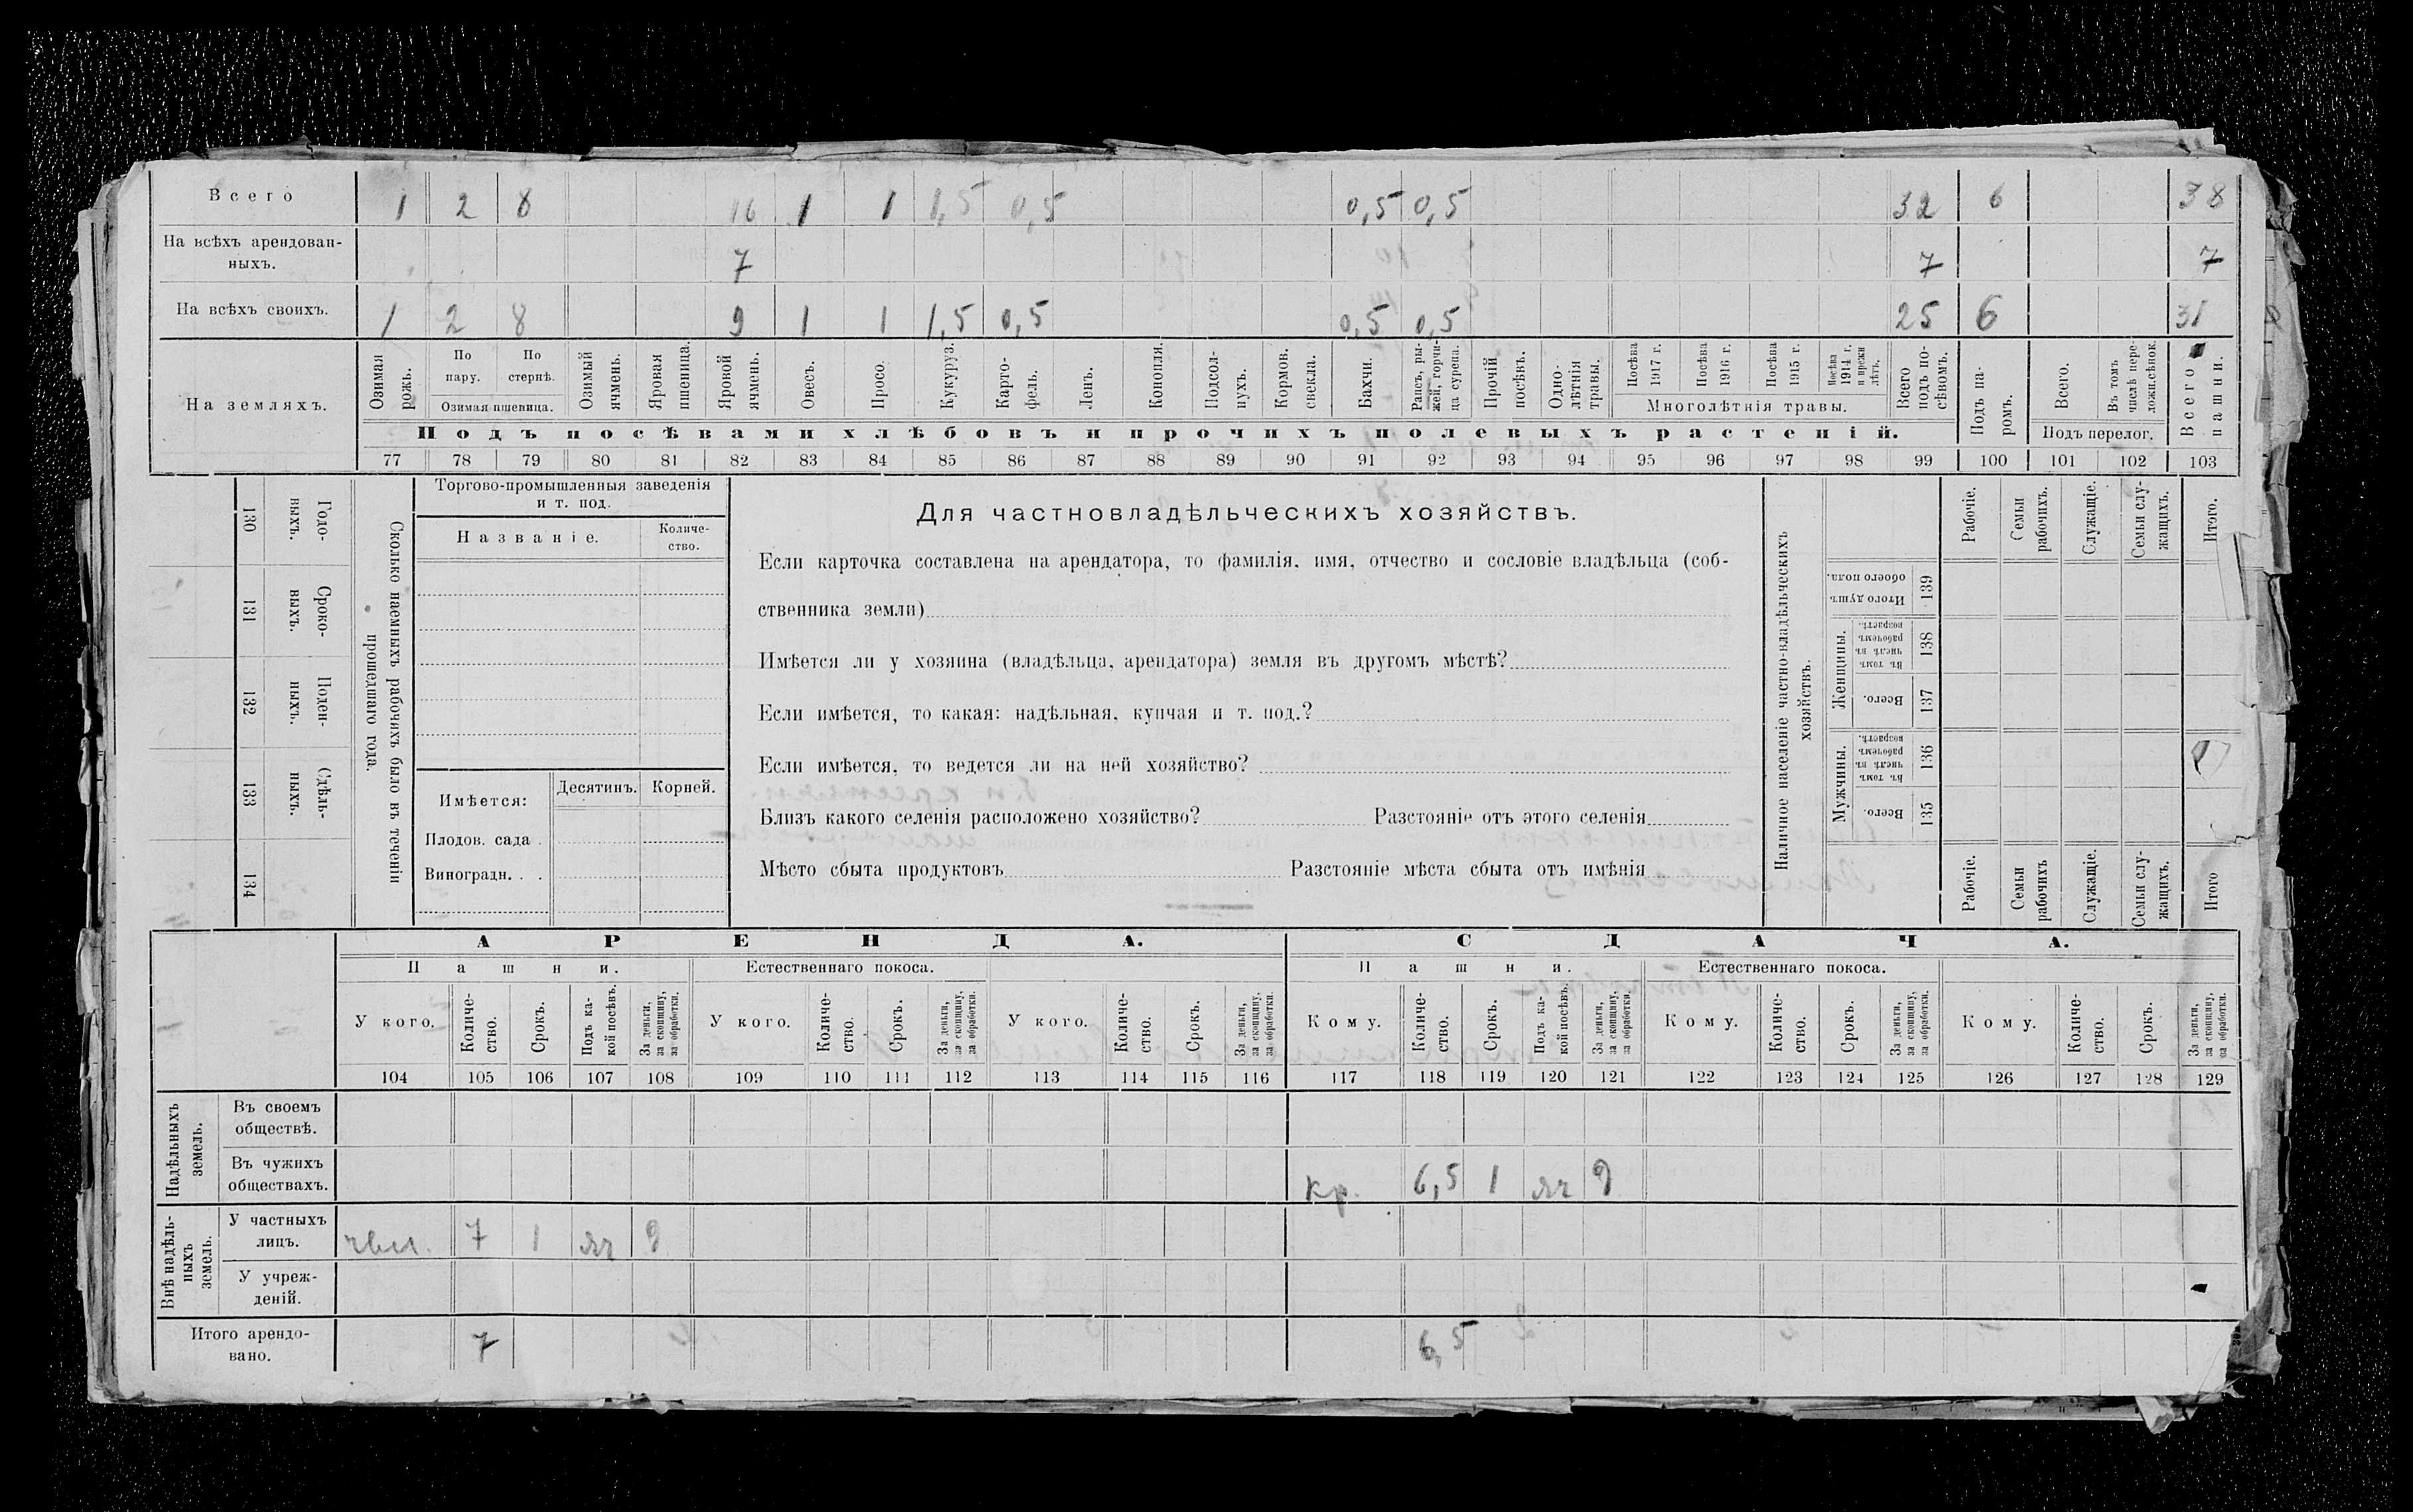 Всего 1 2 8 16 1 1 1,5 0,5 0,5 0,5 32 6 38
На всѣхъ арендован-
ныхъ. 7 7 7
На всѣхъ своихъ. 1 2 8 9 1 1 1,5 0,5 0,5 0,5 25 6 31
На земляхъ.
Озимая рожь.
По пару.
По стернѣ.
Озимая пшеница.
Озимый ячмень.
Яровая пшеница.
Яровой ячмень.
Овесъ.
Просо.
Кукуруз.
Карто-
фель.
Ленъ.
Конопля.
Подсол-
нухъ.
Кормов.
свекла.
Бахчи.
Рапсъ, ры-
жей, горчи-
ца сурепа.
Прочій
посѣвъ.
Одно-
лѣтнія
травы.
Посѣва
1917 г.
Посѣва
1916 г.
Посѣва
1915 г.
Посѣва
1914 г.
и прежн
лѣтъ.
Многолѣтнія травы.
Всего
подъ по-
сѣвомъ.
Подъ па-
ромъ.
Всего.
Въ томъ
числѣ пере-
ложн.сѣнок.
Подъ перелог.
Всего
пашни.
Подъ посѣвами хлѣбовъ и прочихъ полевыхъ растеній.
77 78 79 80 81 82 83 84 85 86 87 88 89 90 91 92 93 94 95 96 97 98 99 100 101 102 103
Сколько наемныхъ рабочихъ было въ теченіи
прошедшаго года.
Годо-
выхъ.
130
Сроко-
выхъ.
131
Поден-
ныхъ.
132
Сдѣль-
ныхъ.
133
134
Торгово-промышленныя заведенія
и т. под.
Названіе.
Количе-
ство.
Имѣется: Десятинъ. Корней.
Плодов. сада .
Виноградн. . .
Для частновладѣльческихъ хозяйствъ.
Если карточка составлена на арендатора, то фамилія, имя, отчество и сословіе владѣльца (соб-
ственника земли)
Имѣется ли у хозяина (владѣльца, арендатора) земля въ другомъ мѣстѣ?
Если имѣется, то какая: надѣльная, купчая и т. под.?
Если имѣется, то ведется ли на ней хозяйство?
Близъ какого селенія расположено хозяйство? Разстояніе отъ этого селенія
Мѣсто сбыта продуктовъ Разстояніе мѣста сбыта отъ имѣнія
Наличное населеніе частно-владѣльческихъ
хозяйствъ.
Рабочіе.
Семьи
рабочихъ.
Служащіе.
Семьи слу-
жащихъ.
Итого.
Итого душъ
обоего пола.
139
Женщины.
Въ томъ
числѣ въ
рабочемъ
возрастѣ.
138
Всего.
137
Мужчины.
Въ томъ
числѣ въ
рабочемъ
возрастѣ.
136
Всего.
135
Рабочіе.
Семьи
рабочихъ
Служащіе.
Семьи слу-
жащихъ.
Итого
АРЕНДА. СДАЧА.
Пашни. Естественнаго покоса. Пашни. Естественнаго покоса.
У кого.
Количе-
ство.
Срокъ.
Подъ ка-
кой посѣвъ.
За деньги,
за скопщину,
за обработки.
У кого.
Количе-
ство.
Срокъ.
За деньги,
за скопщину,
за обработки.
У кого.
Количе-
ство.
Срокъ.
За деньги,
за скопщину,
за обработки.
Кому.
Количе-
ство.
Срокъ.
Подъ ка-
кой посѣвъ.
За деньги,
за скопщину,
за обработки.
Кому.
Количе-
ство.
Срокъ.
За деньги,
за скопщину,
за обработки.
Кому.
Количе-
ство.
Срокъ.
За деньги,
за скопщину,
за обработки.
104 105 106 107 108 109 110 111 112 113 114 115 116 117 118 119 120 121 122 123 124 125 126 127 128 129
Надѣльныхъ
земель.
Въ своемъ
обществѣ.
Въ чужихъ
обществахъ. кр. 6,5 1 яч
Внѣ надѣль-
ныхъ
земель.
У частныхъ
лицъ. 7 1 яч
У учреж-
деній.
Итого арендо-
вано. 7 6,5